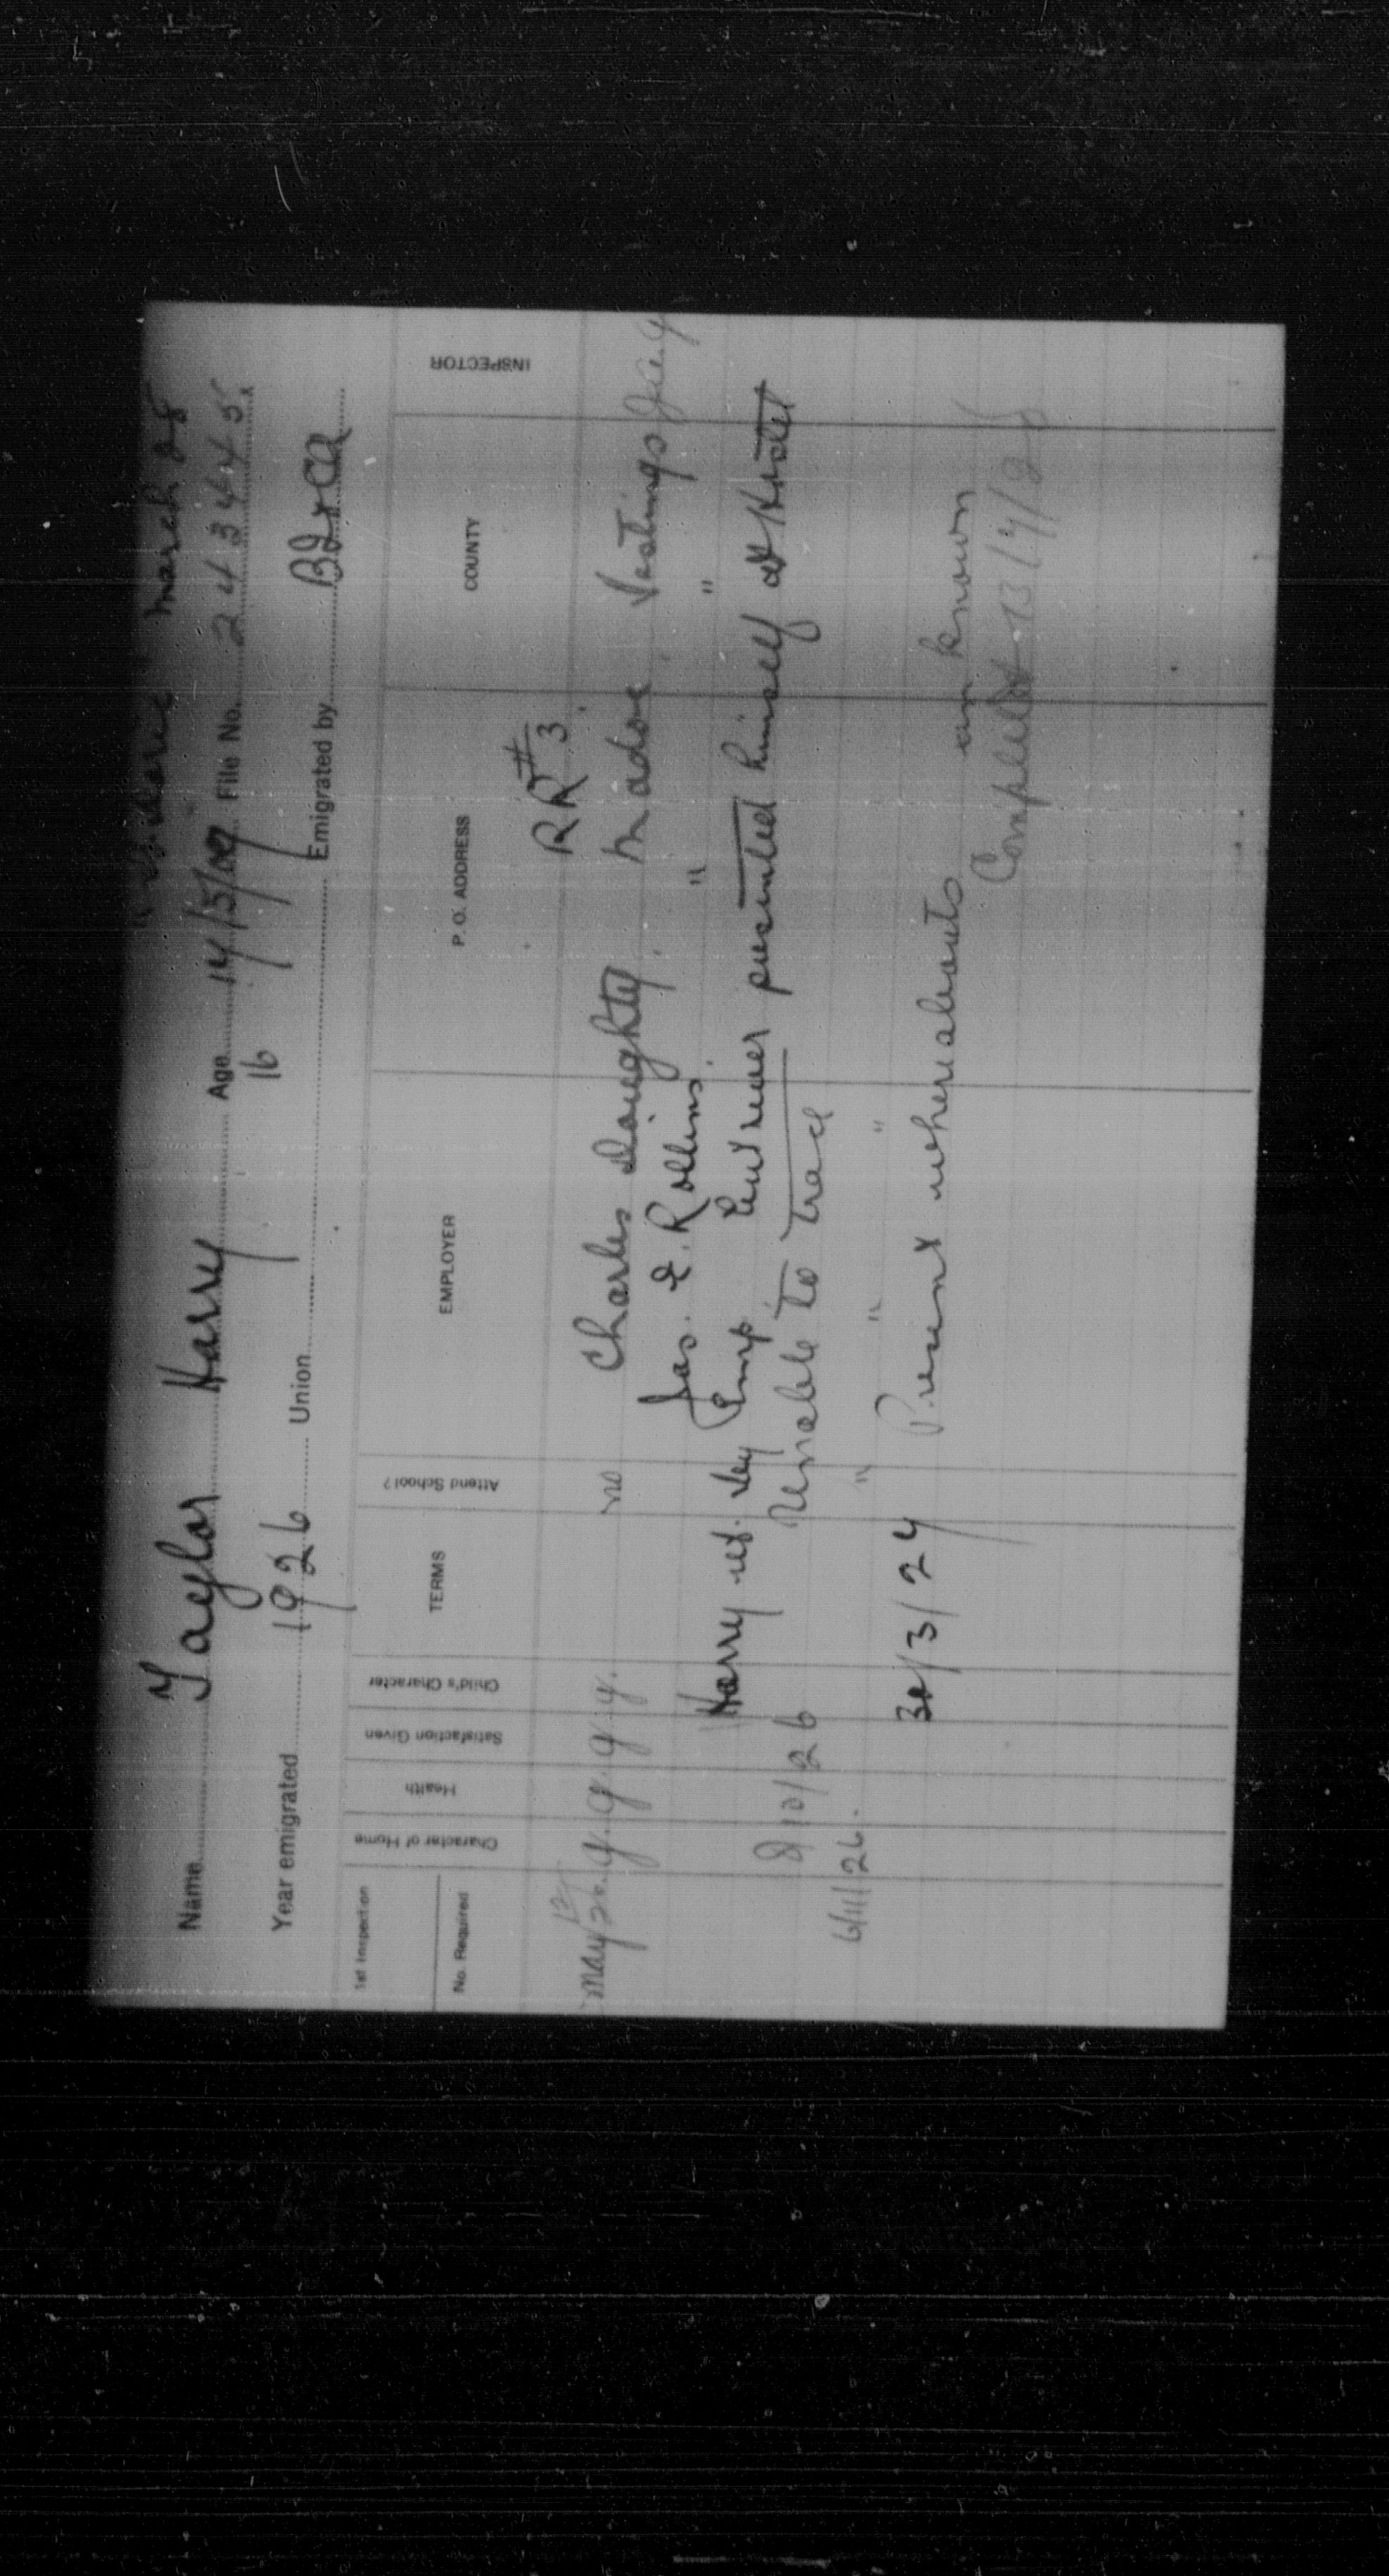 March 28
Name Taylor Harry Age 14/5/09 File No. 243445
16
Year emigrated 1926 Union Emigrated by B&CA
1st Inspection
No. Required
Character of Home
Health
Satisfaction Given
Child's Character
TERMS
Attend School?
EMPLOYER
P. O. ADDRESS
COUNTY
INSPECTOR
RR #3
May 26 g. g. g. g. no Charles Doughty Madoc Hastings
Jas. E. Rollins " "
Harry ret. by Emp but never presented himself at Hostel
10/26 Unable to trace
6/11/26. " " "
30/3/27 Present whereabouts un known
Completed